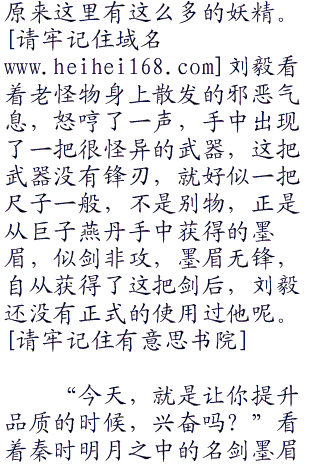 原来这里有这么多的妖精。
[请牢记住域名
www.heihei168.com]刘毅看
着老怪物身上散发的邪恶气
息，怒哼了一声，手中出现
了一把很怪异的武器，这把
武器没有锋刃，就好似一把
尺子一般，不是别物，正是
从巨子燕丹手中获得的墨
眉，似剑非攻，墨眉无锋，
自从获得了这把剑后，刘毅
还没有正式的使用过他呢。
[请牢记住有意思书院]
“今天，就是让你提升
品质的时候，兴奋吗？”看
着秦时明月之中的名剑墨眉